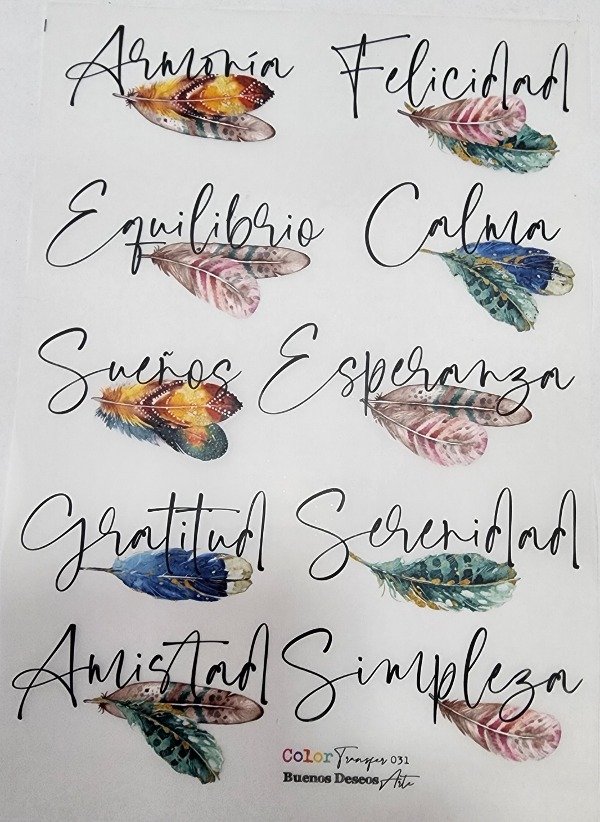 Armonía Felicidad
Equilibrio Calma
Sueños Esperanza
Gratitud Serenidad
Amistad Simpleza
Color Transfer 031
Buenos Deseos Arte